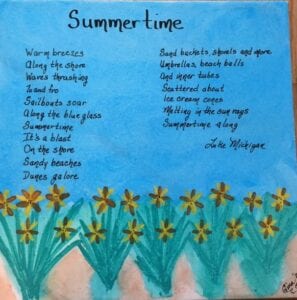 Summertime
Warm breezes
Along the shore
Waves thrashing
To and fro
Sailboats soar
Along the blue glass
Summertime
It's a blast
On the shore
Sandy beaches
Dunes galore
Sand buckets, shovels and more
Umbrellas, beach balls
And inner tubes
Scattered about
Ice cream cones
Melting in the sun rays
Summertime along
Lake Michigan